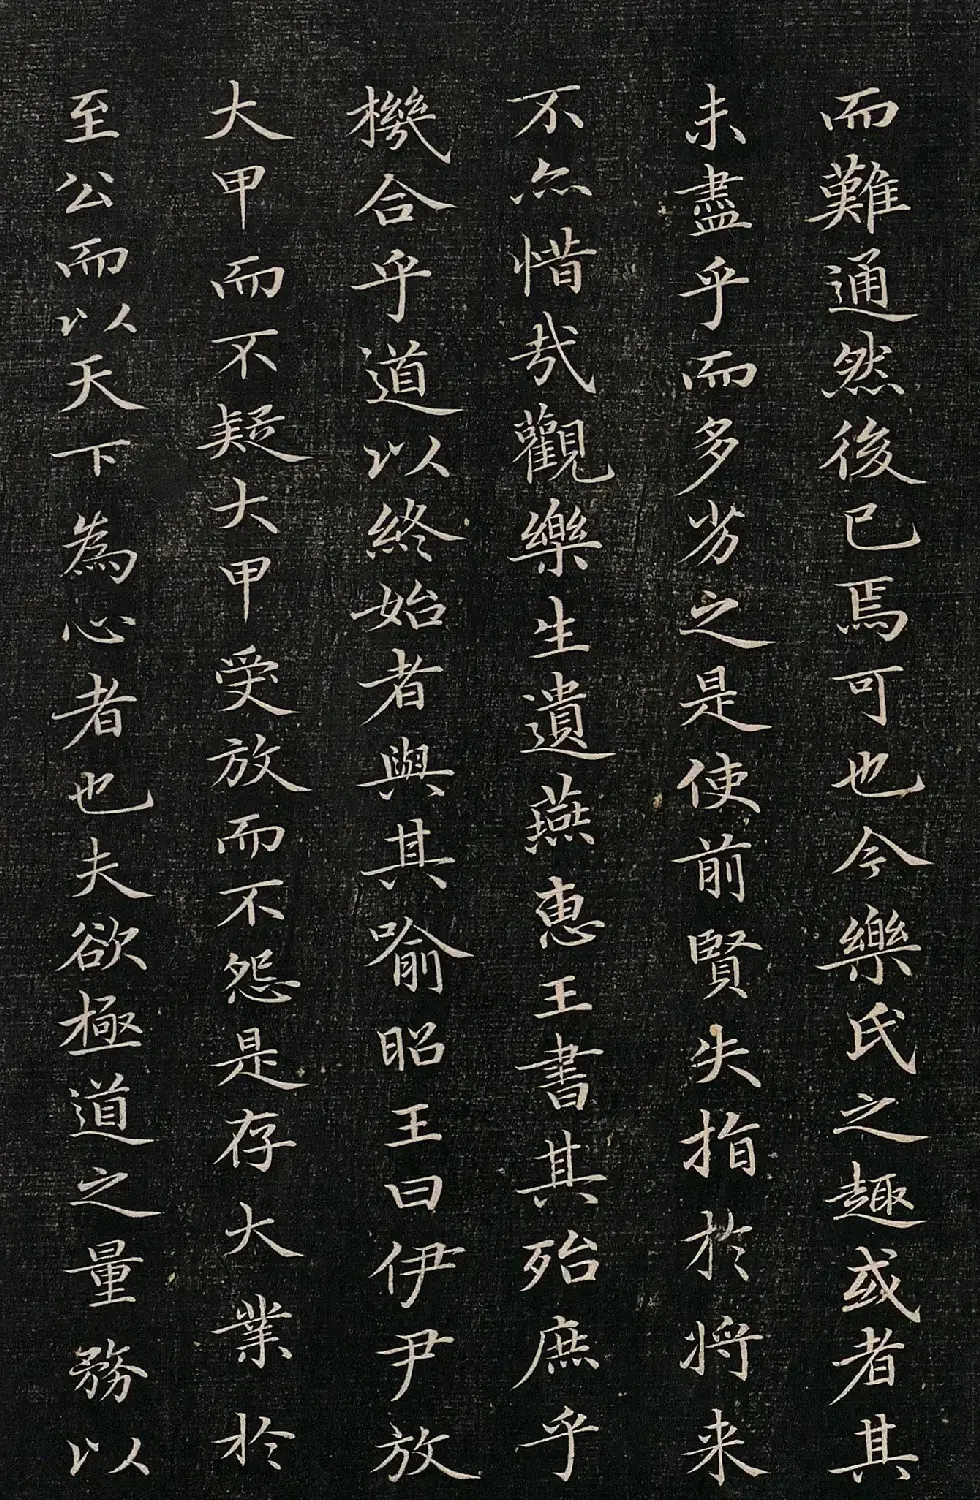 而難通然後已焉可也今樂氏之趣或者其
未盡乎而多劣之是使前賢失指於將来
不亦惜哉觀樂生遺燕惠王書其殆庶乎
機合乎道以終始者與其喻昭王曰伊尹放
大甲而不疑大甲受放而不怨是存大業於
至公而以天下為心者也夫欲極道之量務以